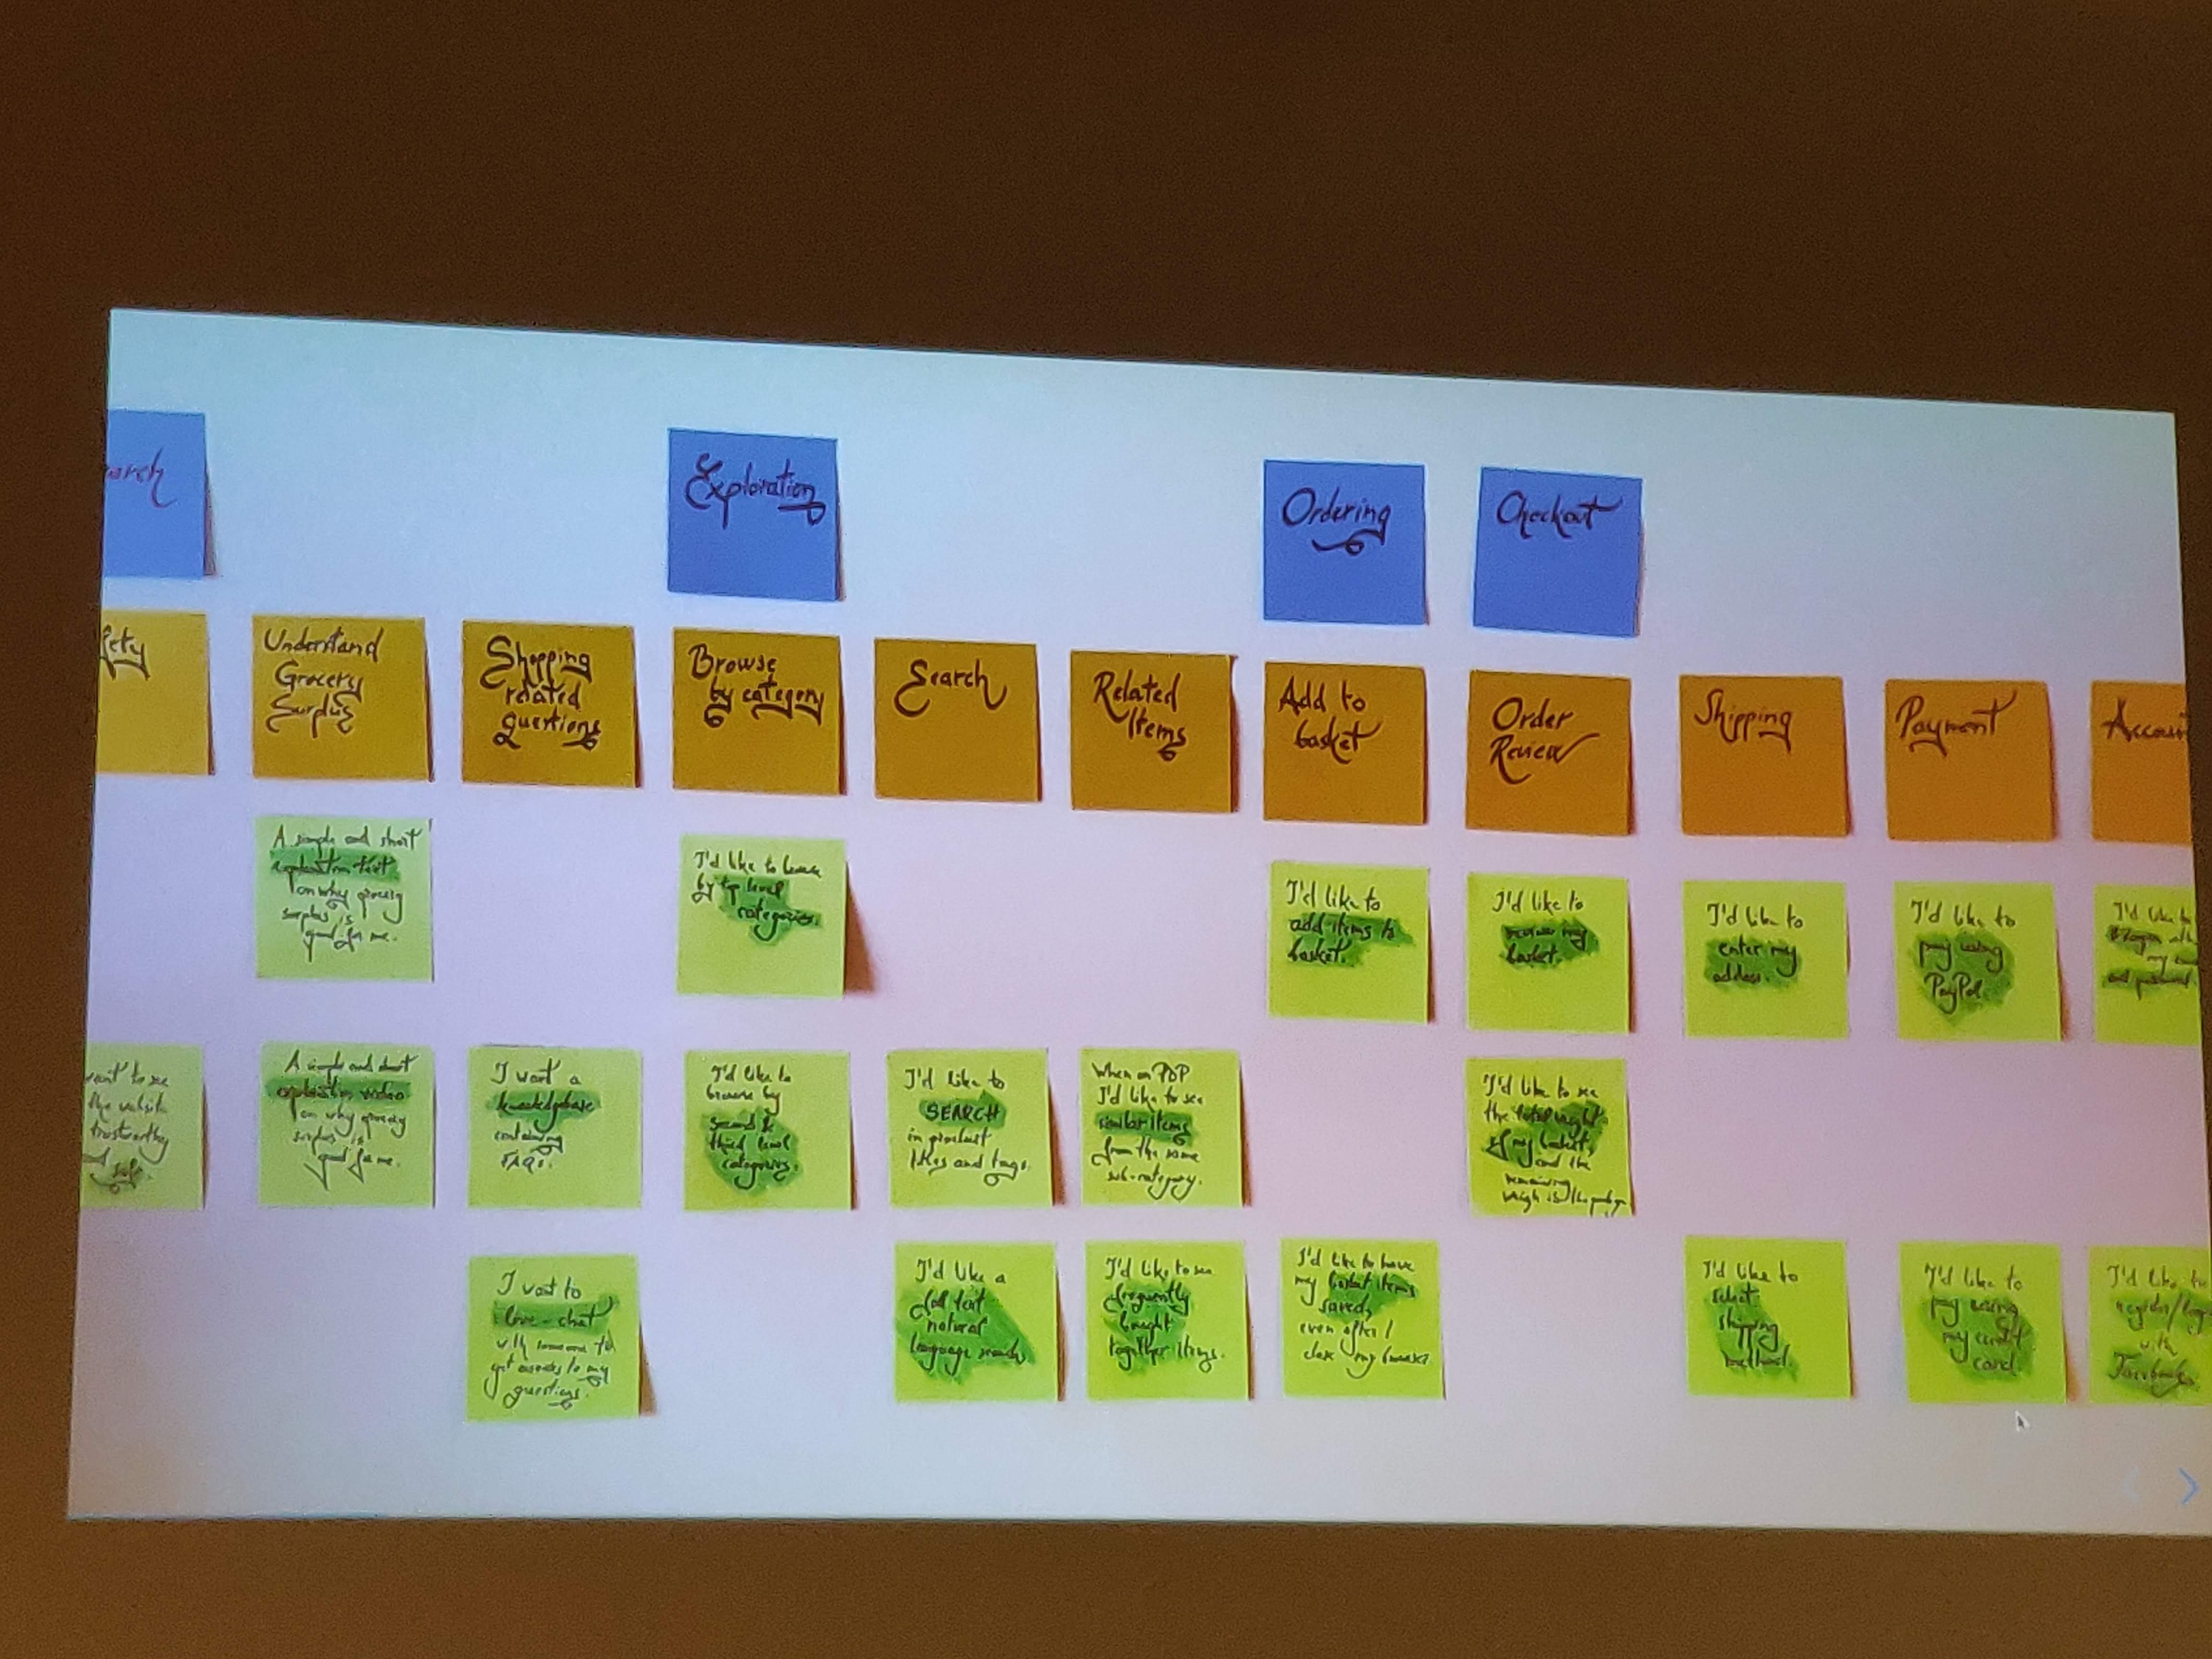 arch
Exploration
Ordering
Checkout
fety
Understand
Grocery
Surplus
Shopping
related
questions
Browse
by category
Search
Related
Items
Add to
basket
Order
Review
Shipping
Payment
Accoun
A simple and short
explanation text
on why grocery
surplus is
good for me.
I'd like to browse
by top level
categories.
I'd like to
add items to
basket.
I'd like to
review my
basket.
I'd like to
enter my
address.
I'd like to
pay using
PayPal.
I'd like to
login with
my
and password
want to see
the website
trustworthy
safe
A simple and short
explanation video
on why grocery
surplus is
good for me.
I want a
knowledgebase
containing
FAQs.
I'd like to
browse by
second &
third level
categories.
I'd like to
SEARCH
in product
and tags.
When on PDP
I'd like to see
similar items
from the same
sub-category.
I'd like to see
the total weight
of my basket,
and the
remaining
weigh is the
I want to
live-chat
with someone to
get answers to my
questions.
I'd like a
full text
natural
language search
I'd like to see
frequently
bought
together items.
I'd like to have
my basket items
saved,
even after I
close my browser
I'd like to
select
shipping
method.
I'd like to
pay using
my credit
card.
I'd like to
register/log
with
Facebook.